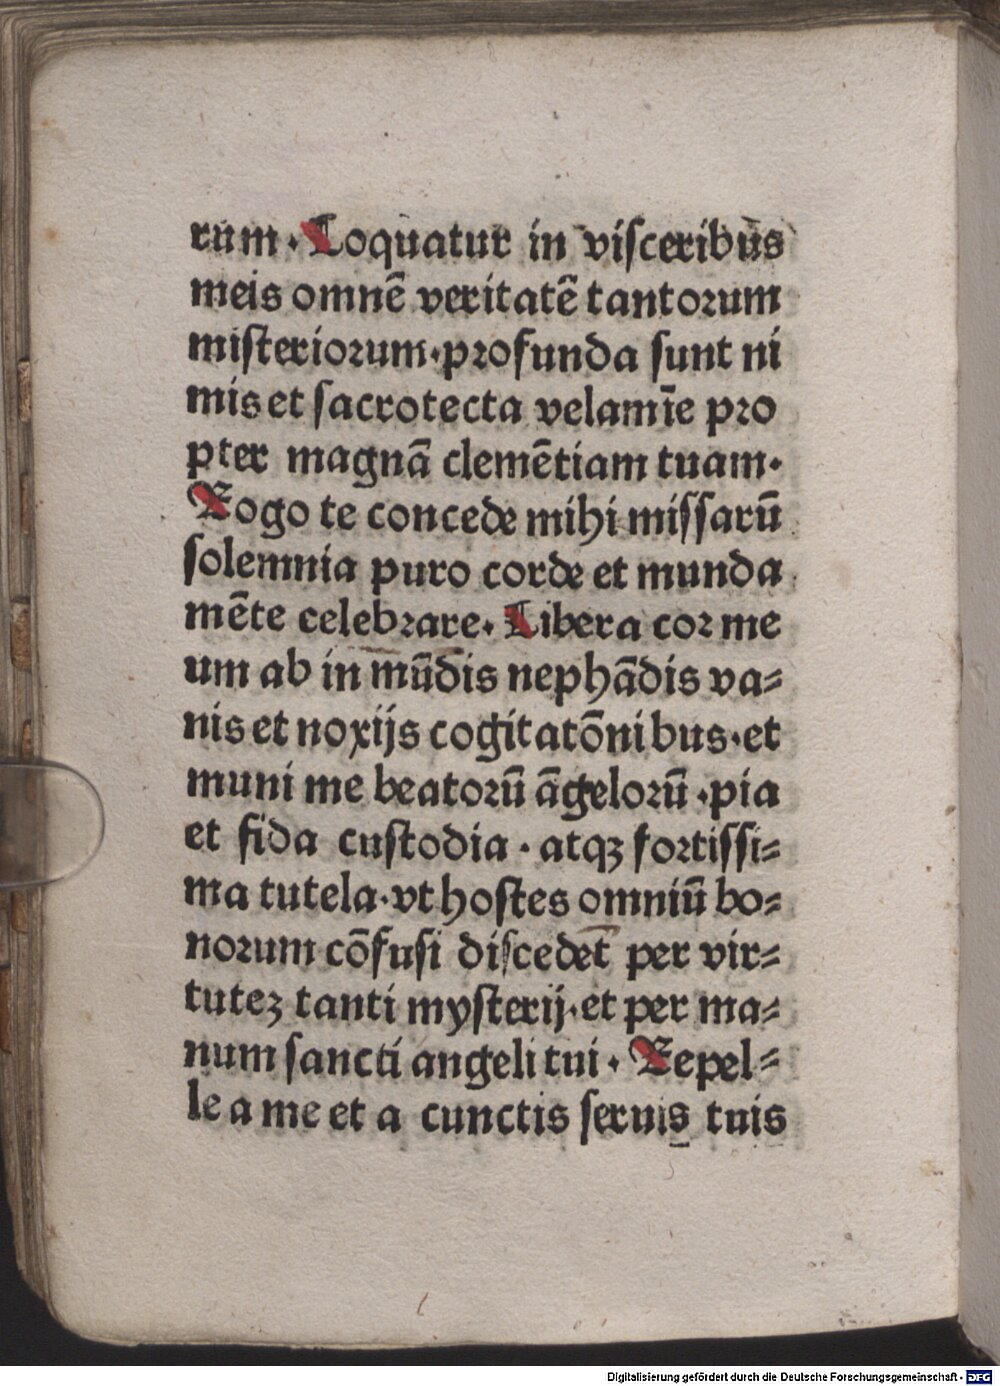 rum. Loquatur in viſceribus
meis omnē veritatē tantorum
miſteriorum.profunda ſunt ni
mis et ſacrotecta velamīe pro
pter magnā clemētiam tuam.
Rogo te concede mihi miſſarū
ſolemnia puro corde et munda
mēte celebrare. Libera cor me
um ab in mūdis nephādis va⸗
nis et noxijs cogitatōnibus.et
muni me beatorū āgelorū .pia
et fida cuſtodia . atqꝫ fortiſſi⸗
ma tutela.vt hoſtes omniū bo⸗
norum cōfuſi diſcedēt per vir⸗
tuteꝫ tanti myſterij.et per ma⸗
num ſancti angeli tui . Repel⸗
le a me et a cunctis ſeruis tuis
Digitalisierung gefördert durch die Deutsche Forschungsgemeinschaft - DFG